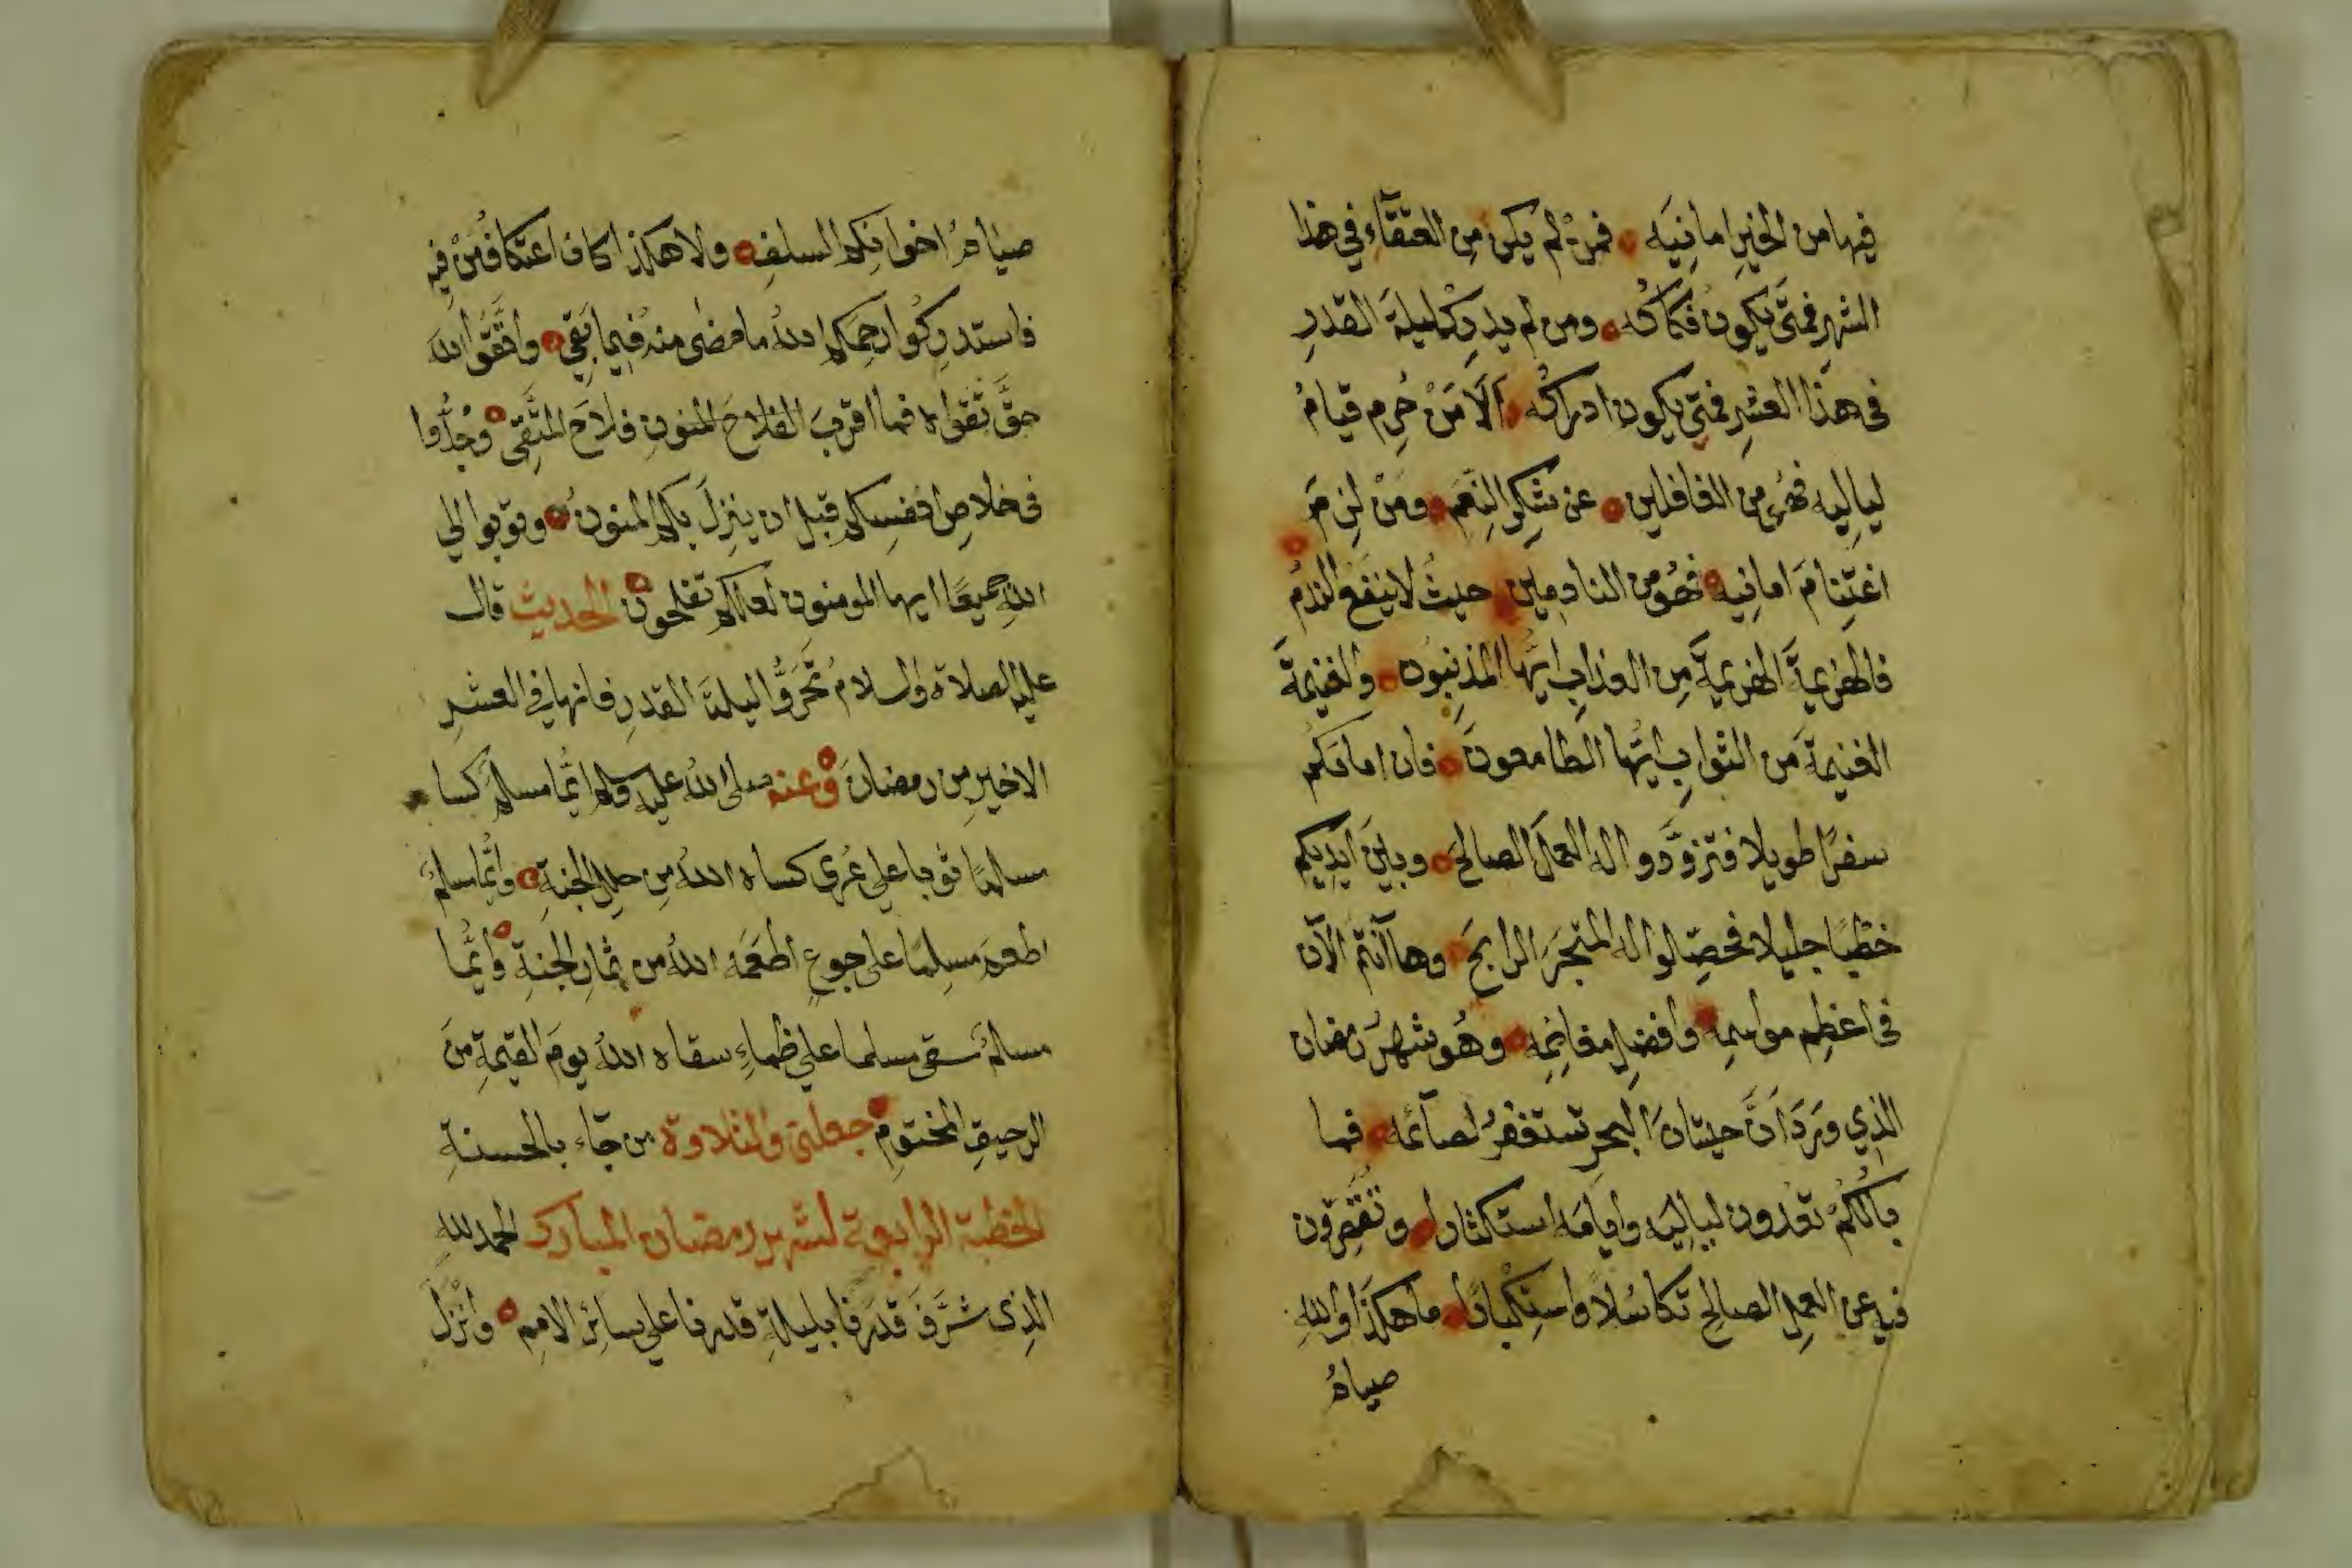 فيها من الخيرِ امانيَه ۝ فمَنْ لم يكن مِن العتقآءِ في هذا
الشهرِ فمتَى يكونُ فَكَاكُه ۝ ومن لم يدرِكْ ليلةَ القدرِ
في هذا العشرِ فمتَى يكون ادراكُه ۝ اَلَا مَنْ حُرِم قيامُ
لياليِه فهُو من الغافلين ۝ عن شكرِ النِعَمِ ۝ ومَنْ لزِمَ
اغتِنامَ امانِيه ۝ فهُو من النادمين ۝ حيثُ لا ينفعُ الندمُ ۝
فالهزيمةَ الهزيمةَ مِن العذابِ ايُّها المذنِبُون ۝ والغنيمةَ
الغنيمةَ من الثوابِ ايُّها الطامعونَ ۝ فان امامَكُم
سفرًا طويلا فتزوَّدوا له العملَ الصالحَ ۝ وبينَ ايديكم
خطبًا جليلا فحصِّلوا له المتجَرَ الرابحَ ۝ وها أنتُم الآن
في اعظمِ مواسمِه ۝ وافضلِ مغانِمِه ۝ وهُو شهرُ رمضان
الذي ورَدَ اَنَّ حيتانَ البحرِ تستغفرُ لصآئمه ۝ فما
بالُكُمْ تعُدون لياليَه وايامَه استكثارا ۝ وتُقصِّرون
فيه عن العملِ الصالحِ تكاسُلاً واستِكبارًا ۝ ما هكذا واللهِ
صيامُ
صيامُ اخوانِكم السلفِ ۝ ولا هكذا كان اعتكافُ مَنْ فيه
فاستدرِكُوا رحِمَكم اللهُ ما مضى منه فيما بقي ۝ واتَّقُوا الله
حقَّ تُقواه فما اقربَ الفلاحَ المنونِ فلاحَ المتَّقي ۝ وجُدُّوا
في خلاصِ انفسِكم قبل ان ينزِلَ بكم المنونُ ۝ وتوبوا الي
اللهِ جميعًا ايها المومنون لعلكم تفلحون ۝ الحديث قال
عليه الصلاة والسلامُ تحَرَّوا ليلة القدرِ فانها في العشرِ
الاخيرِ من رمضانَ ۝ وعنه صلى الله عليه وسلم ايُّما مسلمٍ كسا
مسلمًا ثوبا على عُري كساه اللهُ من حلل الجنةِ ۝ وايُّما مسلمٍ
اطعمَ مسلِمًا على جوعٍ اطعَمَه اللهُ من ثمارِ الجنةِ ۝ وايُّما
مسلمٍ سقى مسلما على ظماءٍ سقاه اللهُ يومَ القيمةِ منَ
الرحيقِ المختومِ ۝ جعلني والتلاوة من جآء بالحسنةِ
الخطبة الرابعة لشهر رمضان المبارك الحمد للهِ
الذِي شرَّفَ قدرَنا بليلةِ قدرِنا على سائر الاممِ ۝ وانْزَلَ